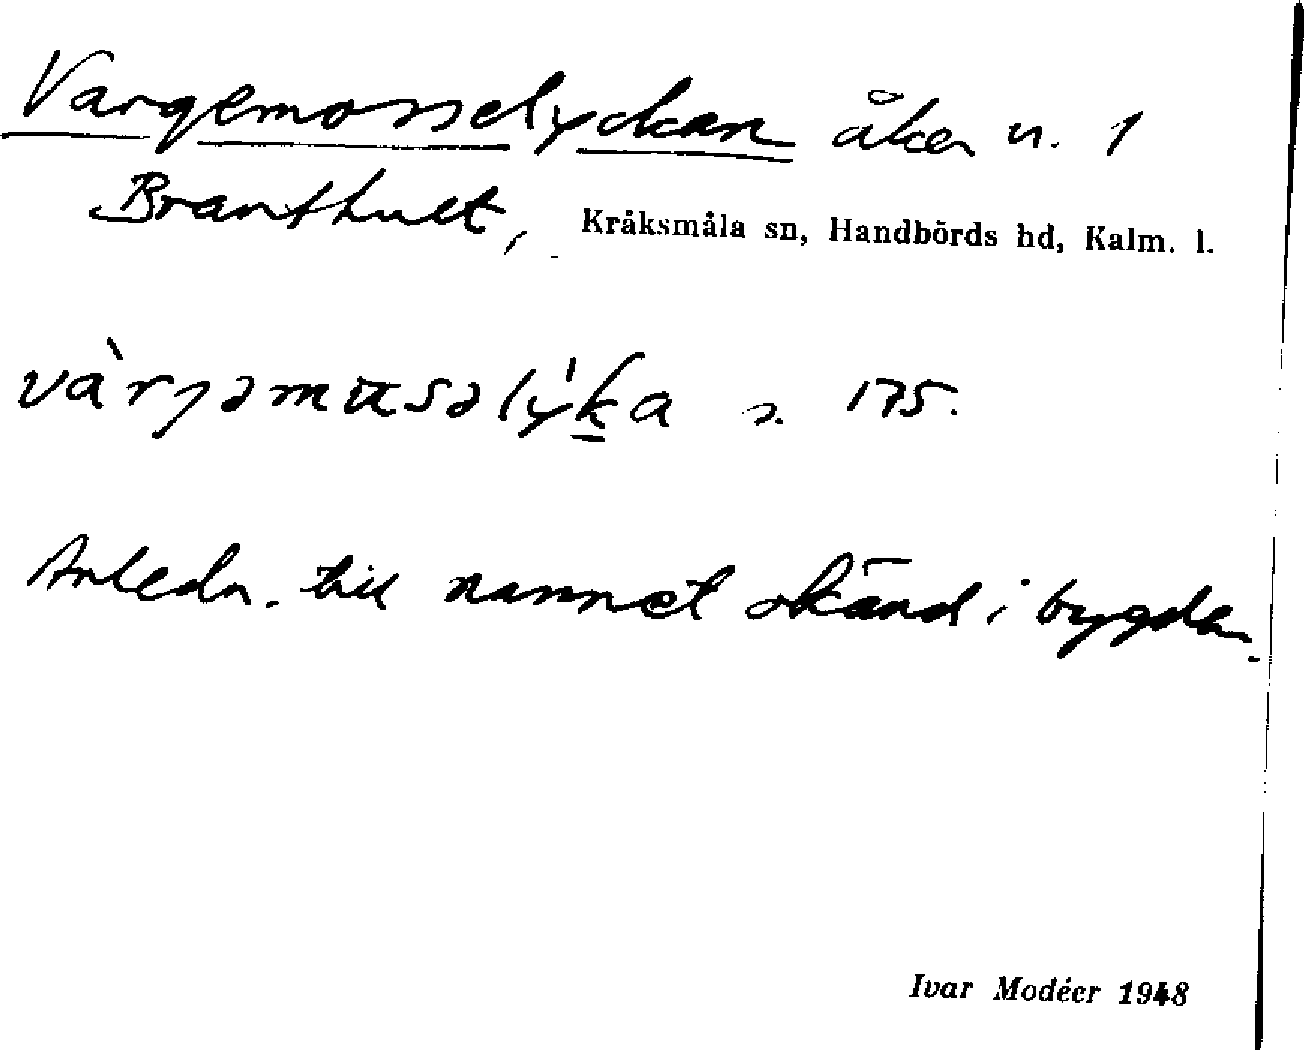 Vargemosselyckan åker n. 1
Branthult, Kråksmåla sn, Handbörds hd, Kalm. l.
s. 175.
Anledn. till namnet okänd i bygden.
Ivar Modéer 1948